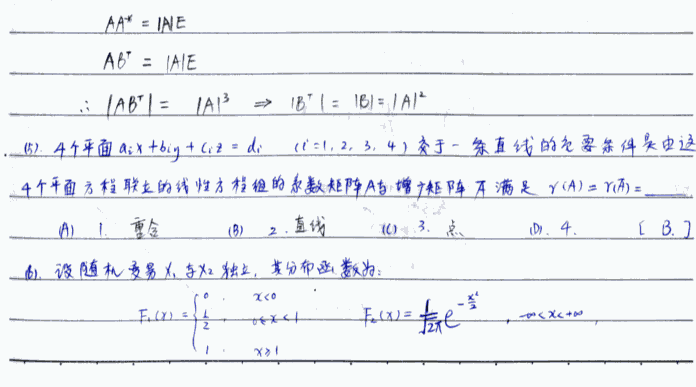 AA* = |A|E
ABᵀ = |A|E
∴ |ABᵀ| = |A|³ ⇒ |Bᵀ| = |B| = |A|²
(5). 4个平面 aᵢx+bᵢy+cᵢz = dᵢ (i=1, 2, 3, 4) 交于一条直线的充要条件是由这
4个平面方程联立的线性方程组的系数矩阵A与增广矩阵 Ā 满足 r(A) = r(Ā) = ____
(A) 1. 重合 (B) 2. 直线 (C) 3. 点 (D). 4. [ B. ]
(6). 设随机变易 X₁ 与 X₂ 独立, 其分布函数为:
F₁(x) = { 0, x<0
1/2, 0≤x<1 F₂(x) = 1/√2π e^(-x²/2), -∞<x<+∞,
1, x≥1